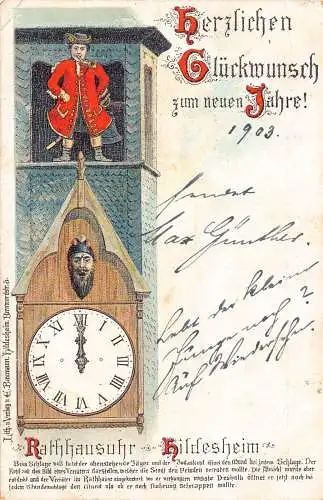 Herzlichen
Glückwunsch
zum neuen Jahre!
1903.
sendet
Max Günther.
Lebt der kleine
Junge noch?
Auf Wiedersehn
Lith. u. Verlag v. E. Baumann, Hildesheim
Rathhausuhr Hildesheim
Beim Schlage will tutet der obenstehende Jäger und der Judaskopf öffnet den Mund bei jedem Schlage. Der
Kopf soll das Bild eines Verräters darstellen, welcher die Stadt den Feinden verraten wollte. Die Absicht wurde aber
entdeckt und der Verräter im Rathhause eingekerkert wo er verhungern musste Deshalb öffnet er jetzt noch bei
jedem Stundenschlage den Mund als ob er nach Nahrung schnappen wollte.